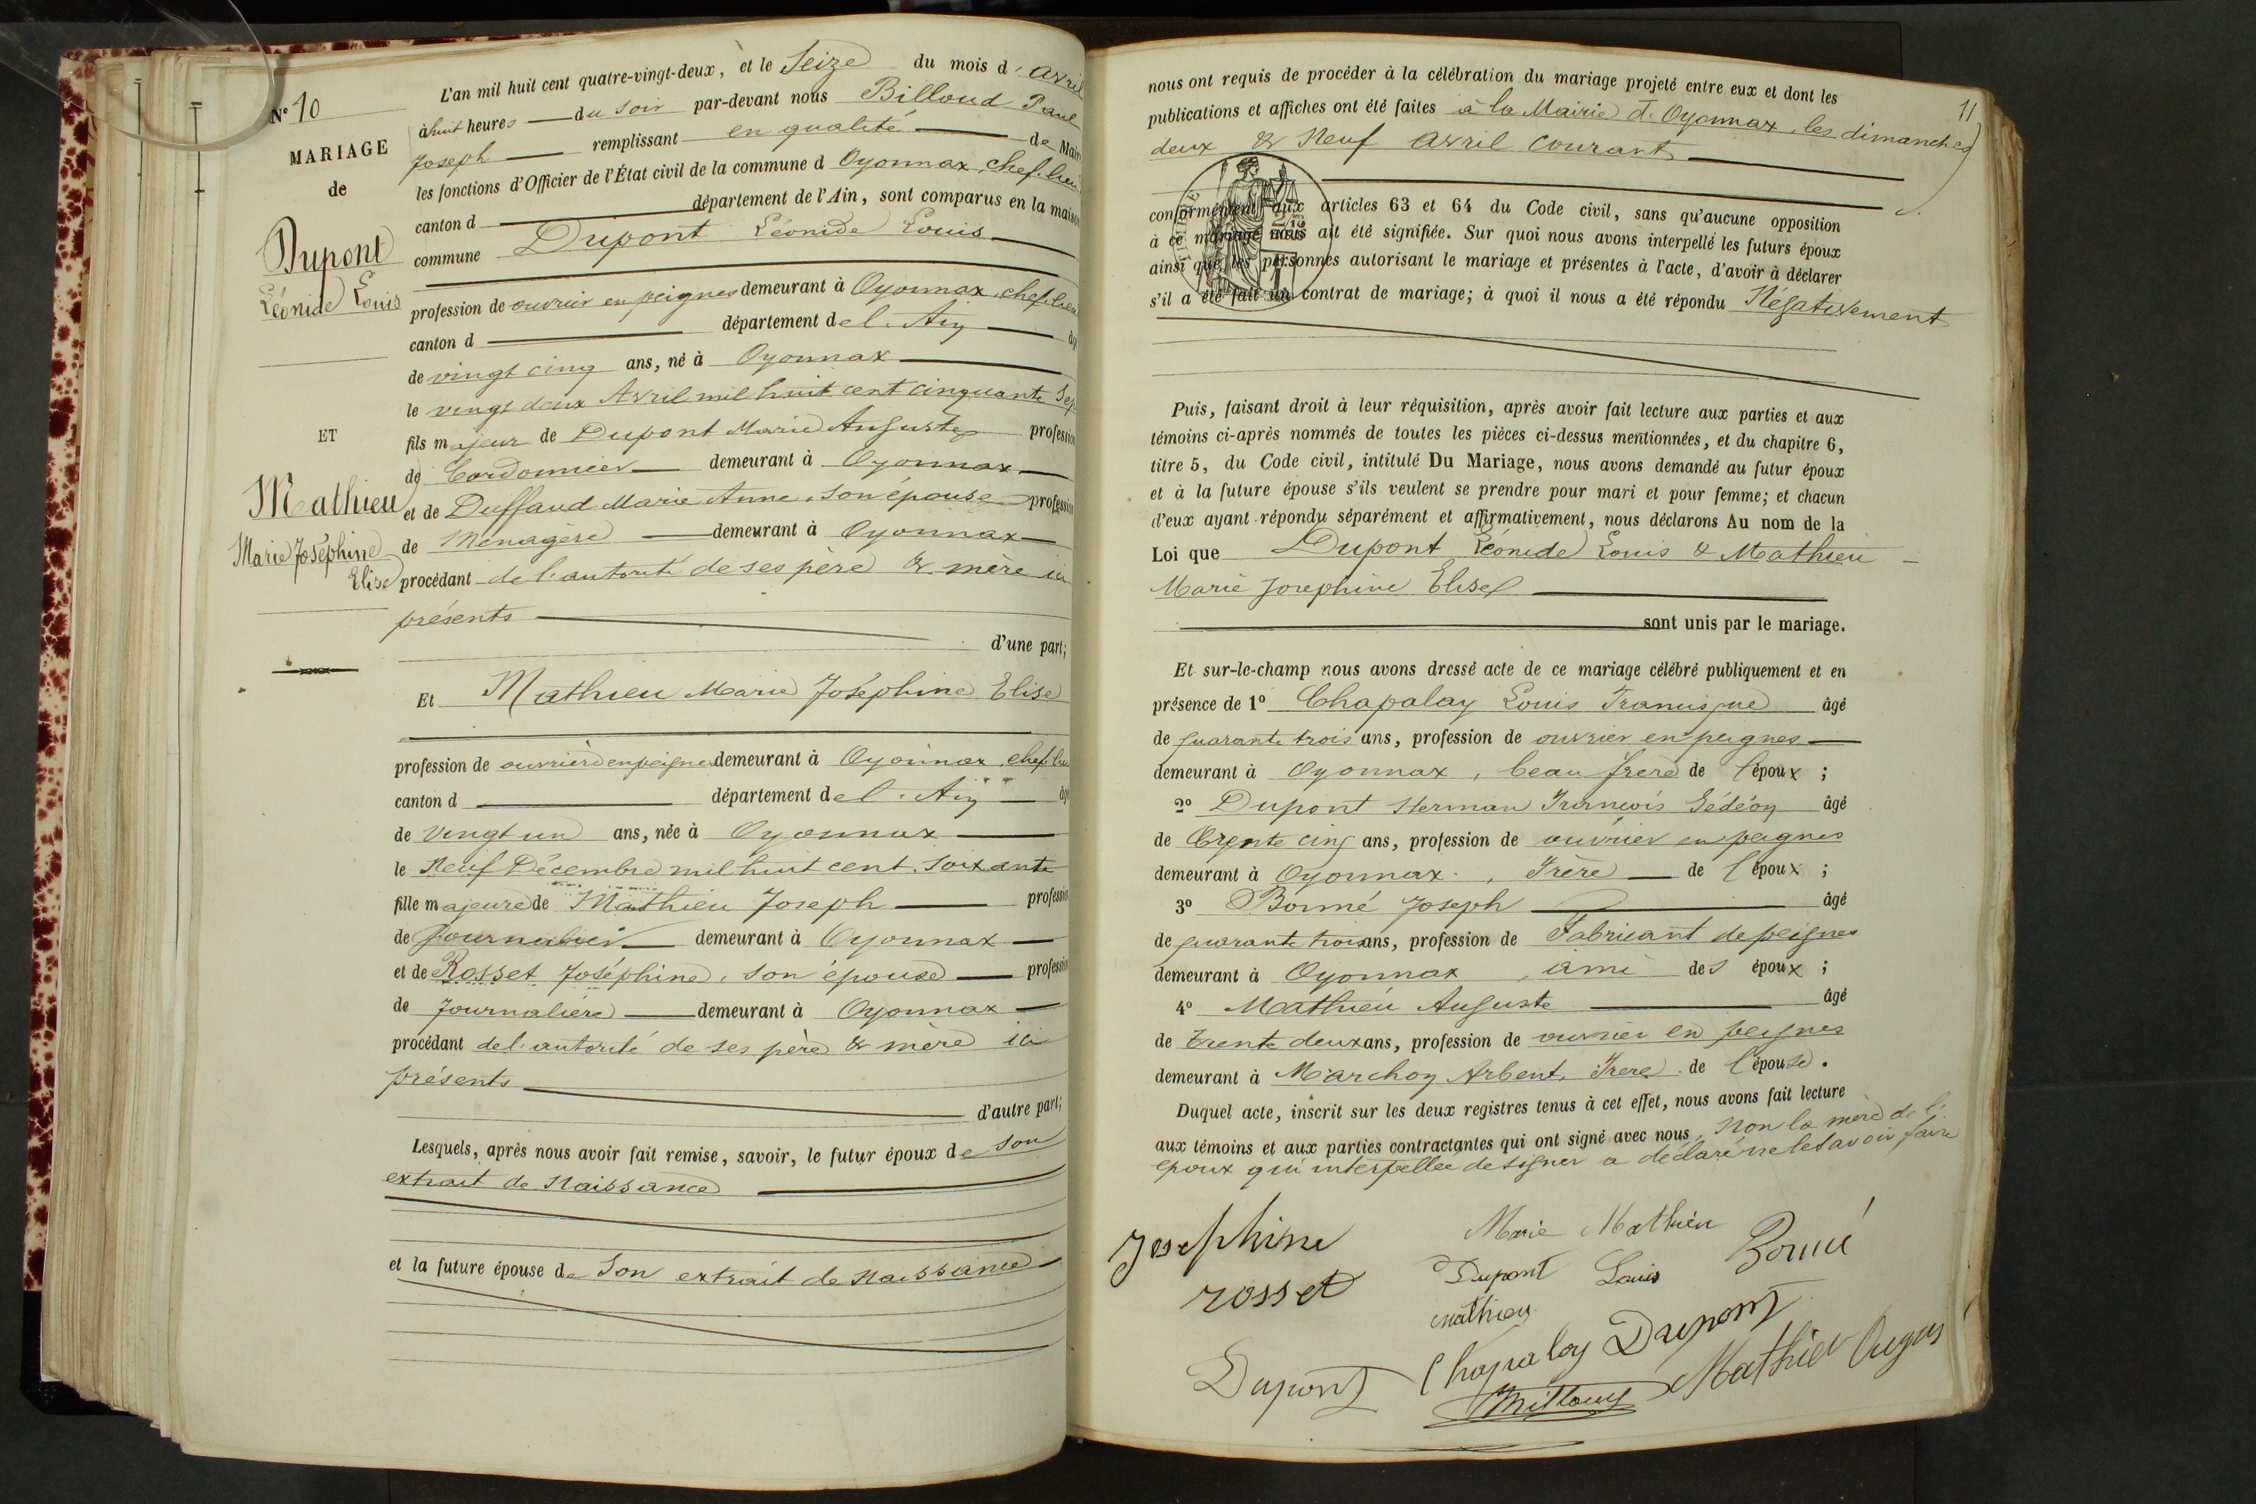 N° 10
MARIAGE
de
Dupont
Léonide Louis
ET
Mathieu
Marie Joséphine
Elise
L'an mil huit cent quatre-vingt-deux, et le Seize du mois d'avril
à huit heures du soir par-devant nous Billoud Paul
Joseph remplissant en qualité de Maire
les fonctions d'Officier de l'État civil de la commune d Oyonnax, chef-lieu
canton d département de l'Ain, sont comparus en la maison
commune Dupont Léonide Louis
profession de ouvrier en peignes demeurant à Oyonnax, chef-lieu
canton d département de l'Ain âgé
de vingt cinq ans, né à Oyonnax
le vingt deux Avril mil huit cent cinquante Sept
fils majeur de Dupont Marie Auguste profession
de Cordonnier demeurant à Oyonnax
et de Duffaud Marie Anne, son épouse profession
de Ménagère demeurant à Oyonnax
procédant de l'autorité de ses père & mère ici
présents
d'une part;
Et Mathieu Marie Joséphine Elise
profession de ouvrière en peignes demeurant à Oyonnax, chef-lieu
canton d département de l'Ain âgé
de vingt un ans, née à Oyonnax
le Neuf Décembre mil huit cent soixante
fille majeure de Mathieu Joseph profession
de Journalier demeurant à Oyonnax
et de Rosset Joséphine, son épouse profession
de Journalière demeurant à Oyonnax
procédant de l'autorité de ses père & mère ici
présents
d'autre part;
Lesquels, après nous avoir fait remise, savoir, le futur époux de son
extrait de Naissance
et la future épouse de Son extrait de naissance
11
nous ont requis de procéder à la célébration du mariage projeté entre eux et dont les
publications et affiches ont été faites à la Mairie d'Oyonnax, les dimanches
deux & Neuf avril courant
conformément aux articles 63 et 64 du Code civil, sans qu'aucune opposition
à ce mariage nous ait été signifiée. Sur quoi nous avons interpellé les futurs époux
ainsi que les personnes autorisant le mariage et présentes à l'acte, d'avoir à déclarer
s'il a été fait un contrat de mariage; à quoi il nous a été répondu Négativement
Puis, faisant droit à leur réquisition, après avoir fait lecture aux parties et aux
témoins ci-après nommés de toutes les pièces ci-dessus mentionnées, et du chapitre 6,
titre 5, du Code civil, intitulé Du Mariage, nous avons demandé au futur époux
et à la future épouse s'ils veulent se prendre pour mari et pour femme; et chacun
d'eux ayant répondu séparément et affirmativement, nous déclarons Au nom de la
Loi que Dupont Léonide Louis & Mathieu
Marie Josephine Elise
sont unis par le mariage.
Et sur-le-champ nous avons dressé acte de ce mariage célébré publiquement et en
présence de 1° Chapalay Louis Francisque âgé
de quarante trois ans, profession de ouvrier en peignes
demeurant à Oyonnax, beau frère de l'époux;
2° Dupont Herman François Gédéon âgé
de Trente cinq ans, profession de ouvrier en peignes
demeurant à Oyonnax, Frère de l'époux;
3° Bonné Joseph âgé
de quarante trois ans, profession de Fabricant de peignes
demeurant à Oyonnax, ami des époux;
4° Mathieu Auguste âgé
de trente deux ans, profession de ouvrier en peignes
demeurant à Marchon Arbent, Frère de l'épouse.
Duquel acte, inscrit sur les deux registres tenus à cet effet, nous avons fait lecture
aux témoins et aux parties contractantes qui ont signé avec nous, Non la mère de l'
époux qui interpellée de signer a déclaré ne le savoir faire
Josephine Marie Mathieu Bonné
rosset Dupont Louis
mathieu
Dupont Chapalay Dupont
Mathieu